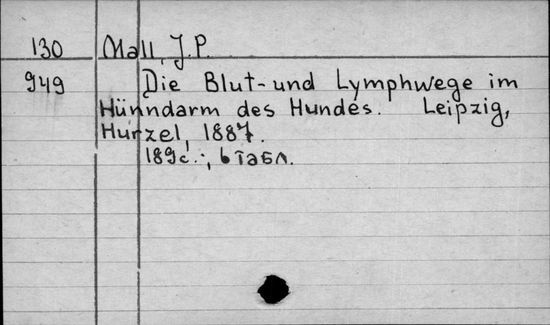 130 Mall, J.P.
949 Die Blut- und Lymphwege im
Hünndarm des Hundes. Leipzig,
Hurzel, 1887.
189c.; 6 табл.